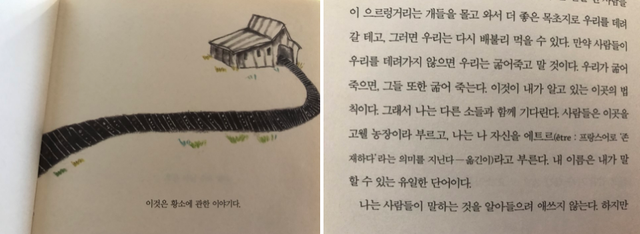 이것은 황소에 관한 이야기다.
이 으르렁거리는 개들을 몰고 와서 더 좋은 목초지로 우리를 데려
갈 테고, 그러면 우리는 다시 배불리 먹을 수 있다. 만약 사람들이
우리를 데려가지 않으면 우리는 굶어죽고 말 것이다. 우리가 굶어
죽으면, 그들 또한 굶어 죽는다. 이것이 내가 알고 있는 이곳의 법
칙이다. 그래서 나는 다른 소들과 함께 기다린다. 사람들은 이곳을
고웰 농장이라 부르고, 나는 나 자신을 에트르(être : 프랑스어로 '존
재하다'라는 의미를 지닌다―옮긴이)라고 부른다. 내 이름은 내가 말
할 수 있는 유일한 단어이다.
나는 사람들이 말하는 것을 알아들으려 애쓰지 않는다. 하지만